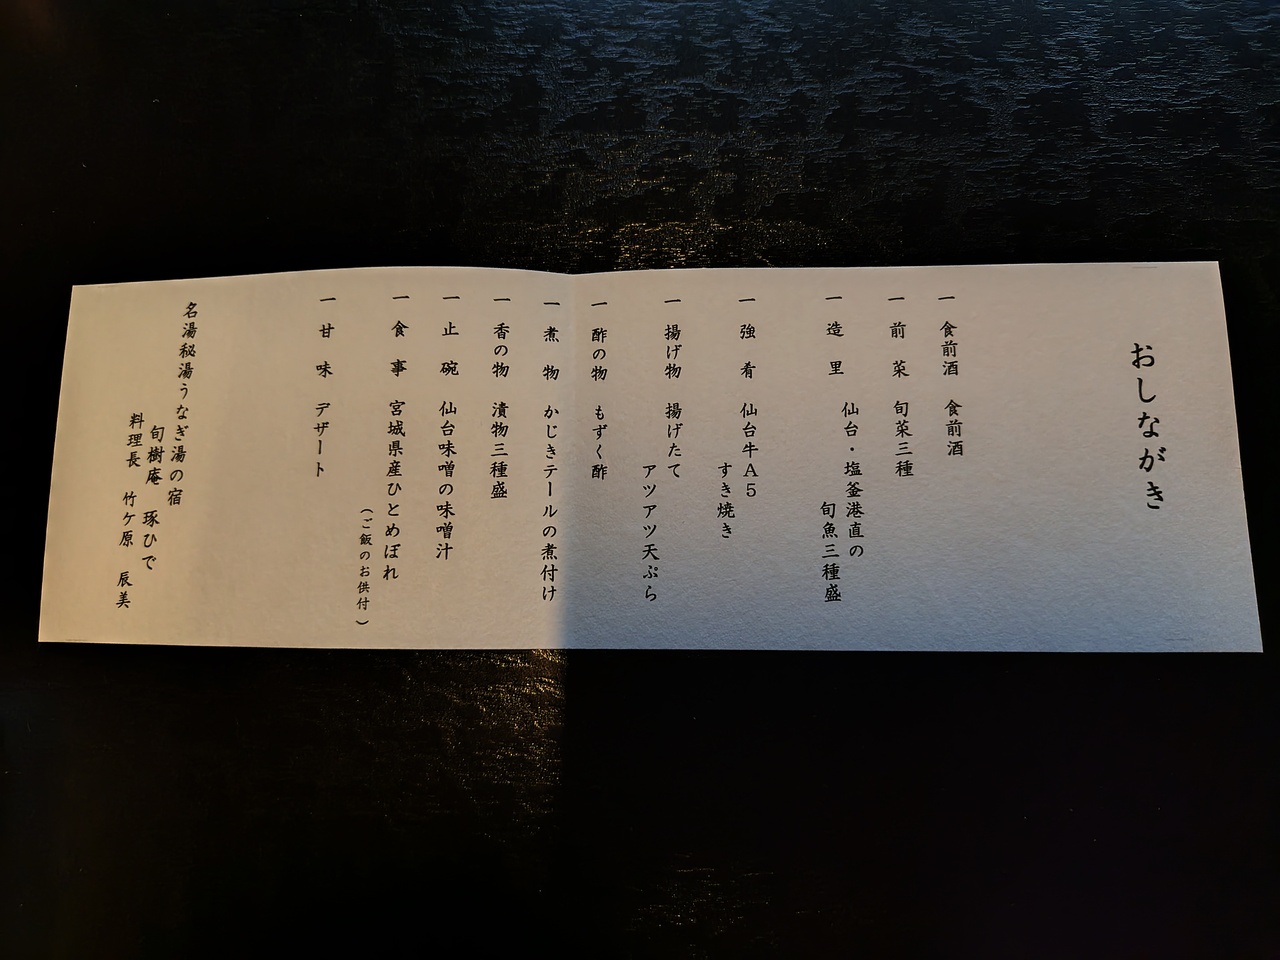 おしながき
一 食前酒 食前酒
一 前菜 旬菜三種
一 造里 仙台・塩釜港直の
旬魚三種盛
一 強肴 仙台牛A5
すき焼き
一 揚げ物 揚げたて
アツアツ天ぷら
一 酢の物 もずく酢
一 煮物 かじきテールの煮付け
一 香の物 漬物三種盛
一 止碗 仙台味噌の味噌汁
一 食事 宮城県産ひとめぼれ
(ご飯のお供付)
一 甘味 デザート
名湯秘湯うなぎ湯の宿
旬樹庵 琢ひで
料理長 竹ケ原 辰美